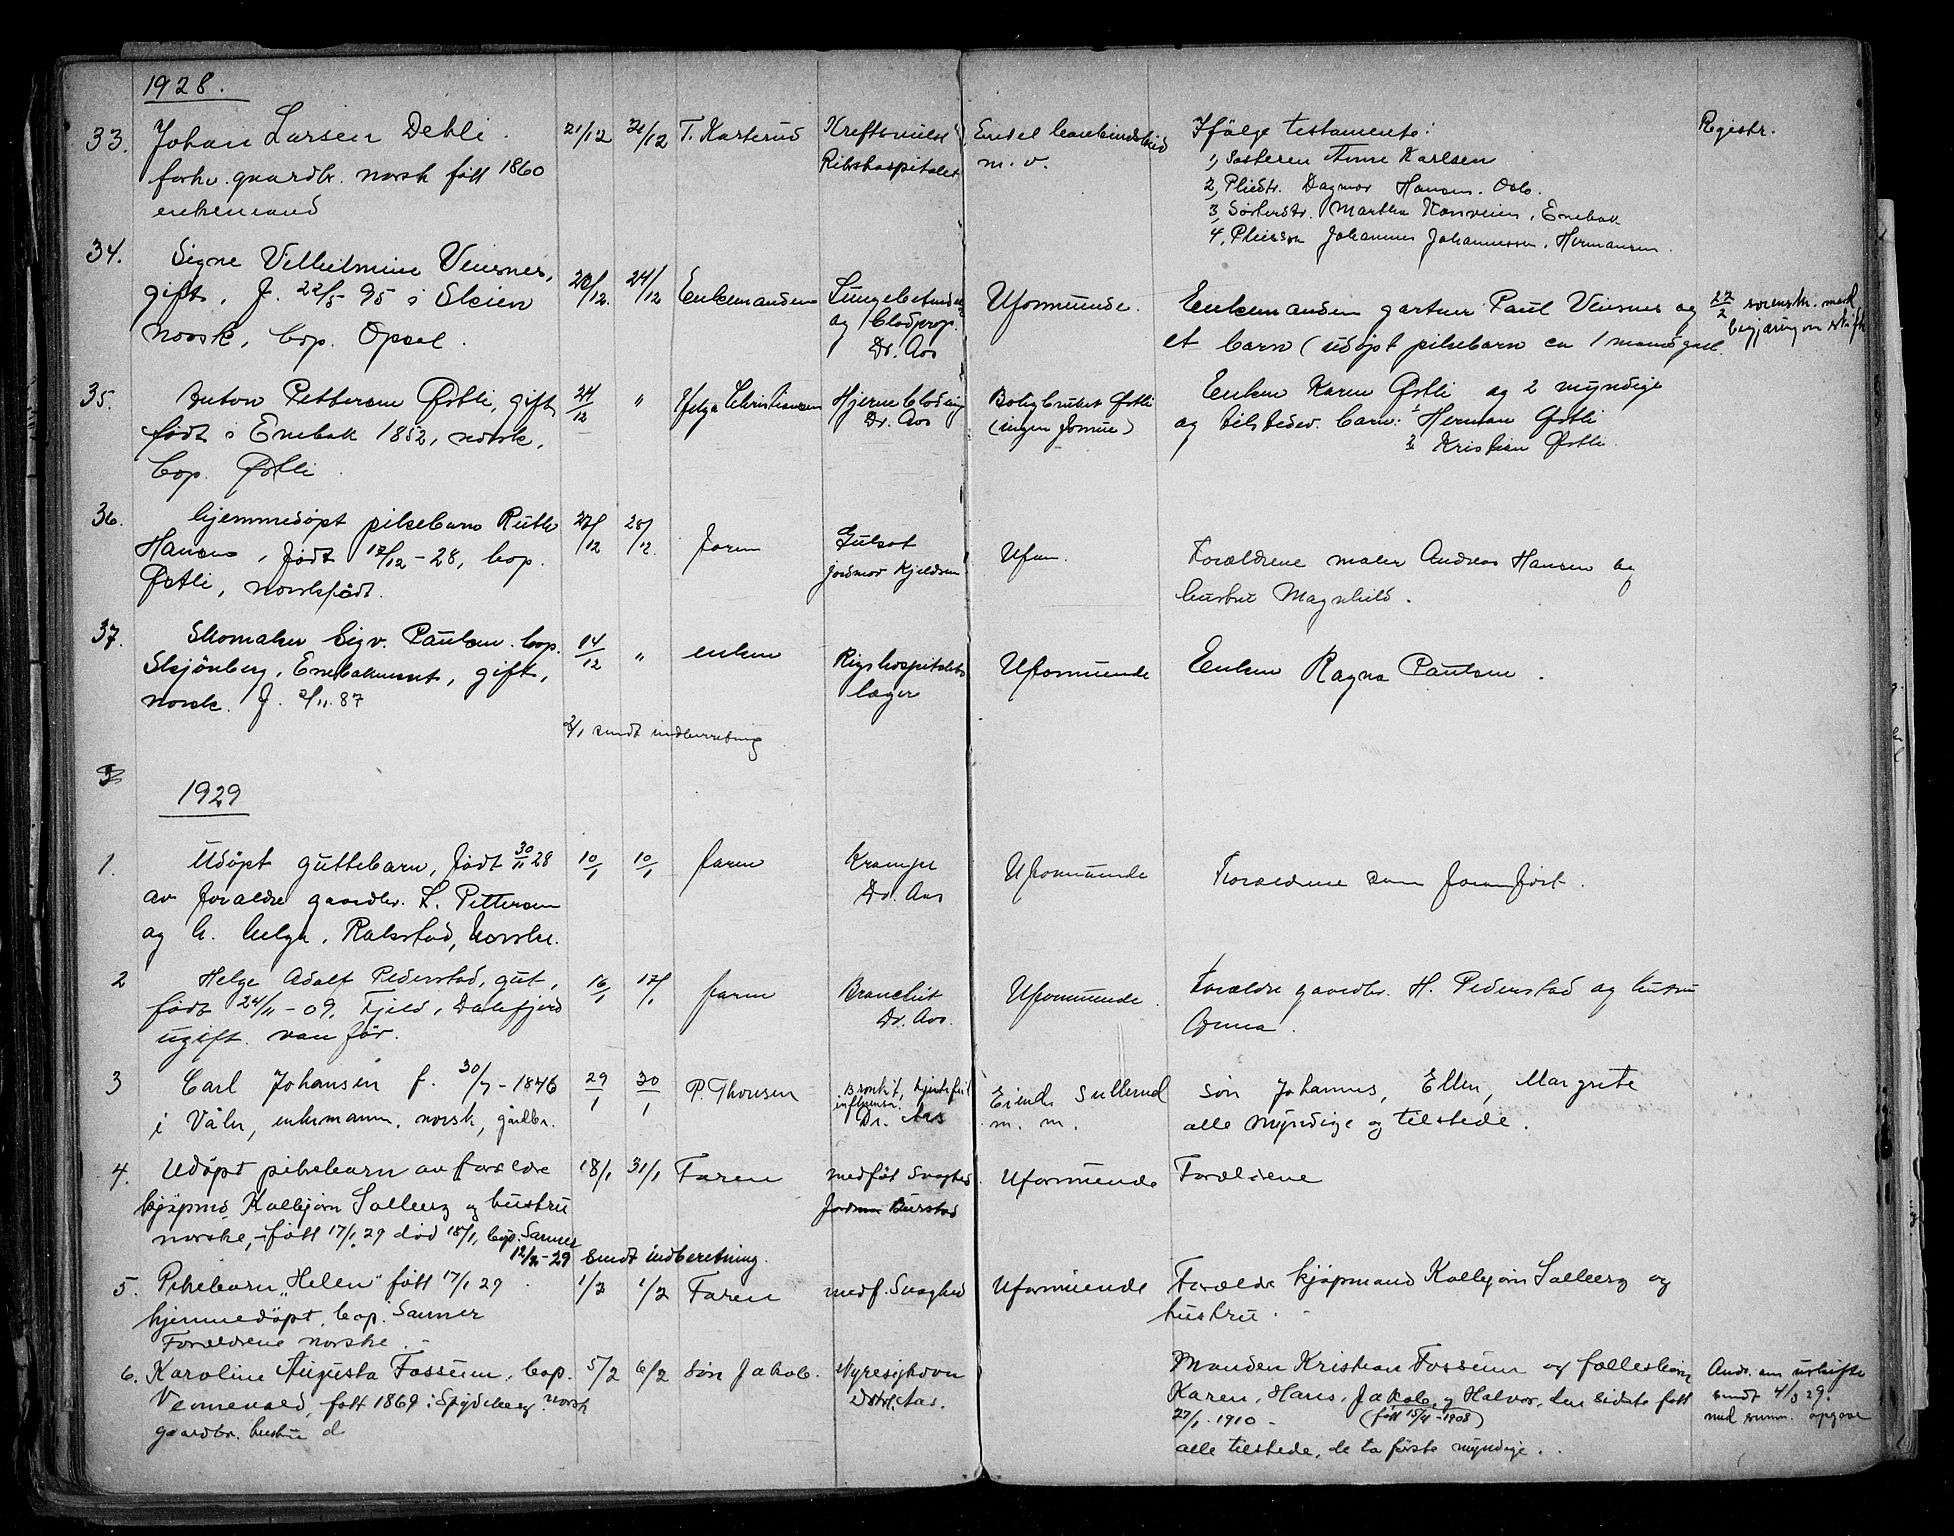 1928.
33. Johan Larsen Dehli. 21/12 21/12 T. Karterud Kreftsvulst Endel bankindskud Ifølge testamente: Registr.
forhv. gaardbr. norsk født 1860 Rikshospitalet m. v. 1, Søsteren Anne Karlsen
enkemand 2, Pleiedtr. Dagmar Hansen. Oslo.
3, Søsterdtr. Martha, Enebak
4, Pleiesøn Johannes Johannessen, Hermansen.
34. Signe Vilhelmine Veiesnes,
gift, f. 22/5 95 i Skien 24/12 Enkemanden Lungebetendelse Uformuende. Enkemanden gartner Paul Veiesnes og 22/2 sorenskr. med
norsk, bop. Opsal. og blodprop. et barn (udøpt pikebarn ca 1 maaned gml. begjæring om skifte
Dr. Aas
35. Anton Pettersen Østli, gift, 24/12 " Helga Christiansen Hjerneblødning Boligbruket Østli Enken Karen Østli og 2 myndige
født i Enebak 1852, norsk, Dr. Aas (ingen formue) og tilstedev. barn: 1 Herman Østli
bop. Østli. 2 Kristian Østli.
36. hjemmedøpt pikebarn Ruth 27/12 28/12 faren Gulsot Ufom. Forældrene maler Andreas Hansen og
Hansen, født 17/12 - 28, bop. Jordmor Kjeldsen hustru Magnhild.
Østli, norskfødt.
37. Skomaker Sigv. Paulsen bop. 14/12 " enken Rigshospitalets Uformuende Enken Ragna Paulsen.
Skjønberg, Enebakneset, gift, læger
norsk. f. 2/11. 87
2/1 sendt indberetning
1929
1. Udøpt guttebarn, født 30/11 28 10/1 10/1 faren Krampe Uformuende Forældrene som foranført.
av forældre gaardbr. L. Pettersen Dr. Aas
og h. Helga, Rakstad, Norske.
2 Helge Adolf Pederstad, gut, 16/1 17/1 faren Bronchit Uformuende. Forældre gaardbr. H. Pederstad og hustru
født 24/11 - 09, Fjeld, Dalefjerd Dr. Aas.
ugift. van før.
3 Carl Johansen f. 30/7 - 1846 29/1 30/1 P. Thoresen Bronkit, hjertefeil Eiend. Sullerud søn Johannes, Ellen, Margrete
i Våler, enkemann, norsk, gårdbr. influensa. Dr. Aas m. m. alle myndige og tilstede.
4. Udøpt pikebarn av forældre 18/1 31/1 Faren medfødt svaghed Uformuende Forældrene
kjøpmd Kolbjørn Solberg og hustru Jordmor Burstad
norske, - født 17/1 29 død 18/1, bop. Sanner
12/2 - 29 Sendt indberetning.
5. Pikebarn "Helen" født 17/1 29 1/2 1/2 Faren medf. Svaghed Uformuende Forældre kjøpmand Kolbjørn Solberg og
hjemmedøpt, bop. Sanner hustru.
Forældrene norske.
6. Karoline Augusta Fossum, bop. 5/2 6/2 Søn Jakob. Nyresygdom Manden Kristian Fossum og fællesbørn Ands. om uskifte
født 1869 i Spydeberg norsk Dstrl. Aas. Karen, Hans, Jakob, og Halvor, den sidste født sendt 4/3 29.
gaardbr. hustru d 27/1 - 1910 - (født 15/4 - 1908) med summ. opgave
alle tilstede, de to første myndige.